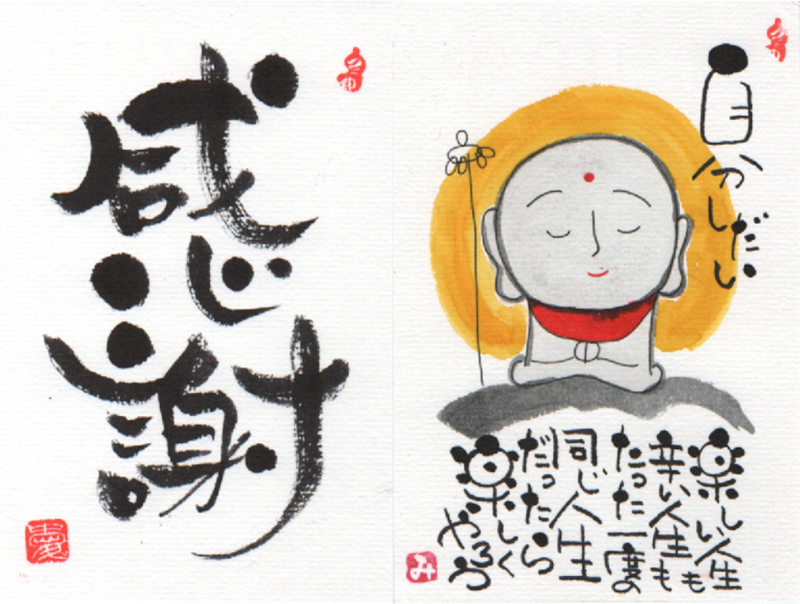 感謝
自分しだい
楽しい人生も
辛い人生も
たった一度の
同じ人生
だったら
楽しく
やろう
み